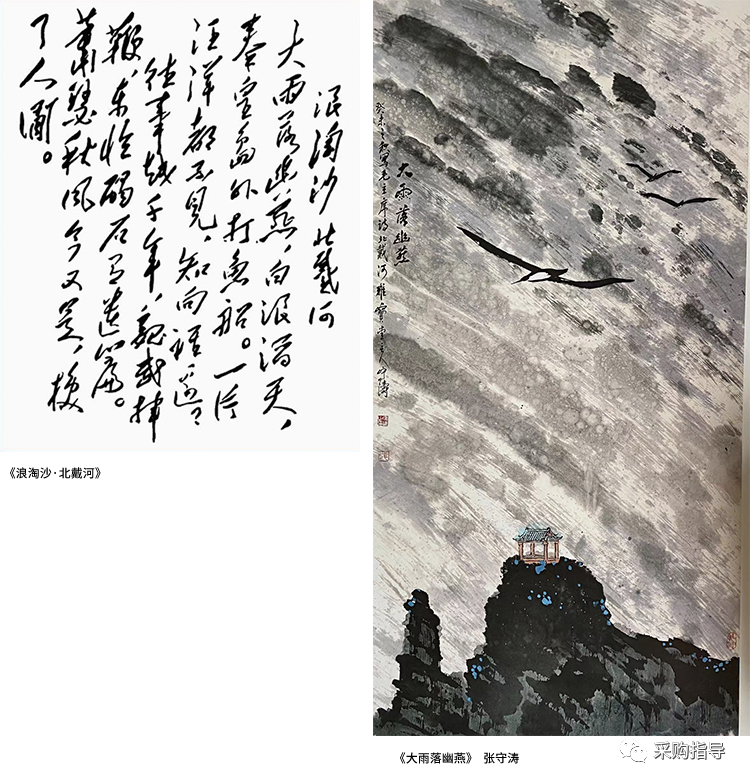 浪淘沙 北戴河
大雨落幽燕,白浪滔天,
秦皇島外打魚船。一片
汪洋都不見,知向誰邊?
往事越千年,魏武揮
鞭,東臨碣石有遺篇。
蕭瑟秋風今又是,換
了人間。
《浪淘沙·北戴河》
大雨落幽燕
癸未之秋寫毛主席詩北戴河
《大雨落幽燕》 张守涛
采购指导